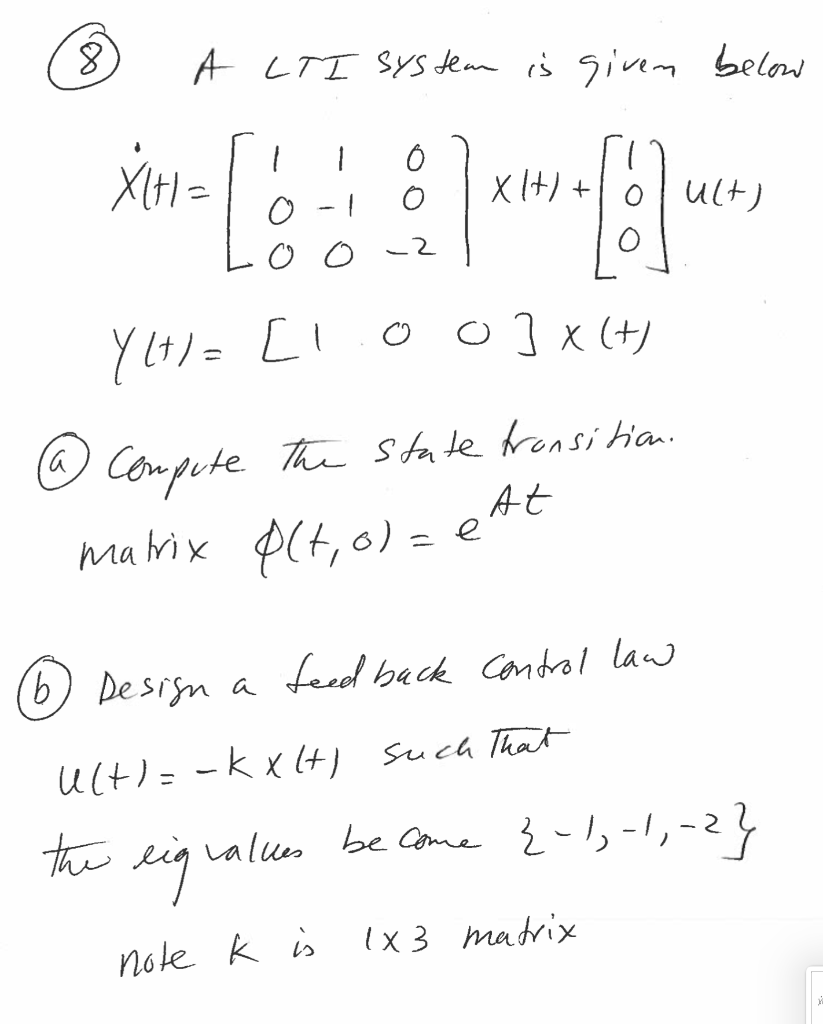 ⑧ A LTI system is given below
Ẋ(t) = [1 1 0; 0 -1 0; 0 0 -2] x(t) + [1; 0; 0] u(t)
Y(t) = [1 0 0] x(t)
ⓐ Compute the state transition.
matrix φ(t,0) = e^At
ⓑ Design a feedback control law
u(t) = -k x(t) such that
the eigvalues become {-1, -1, -2}
note k is 1x3 matrix